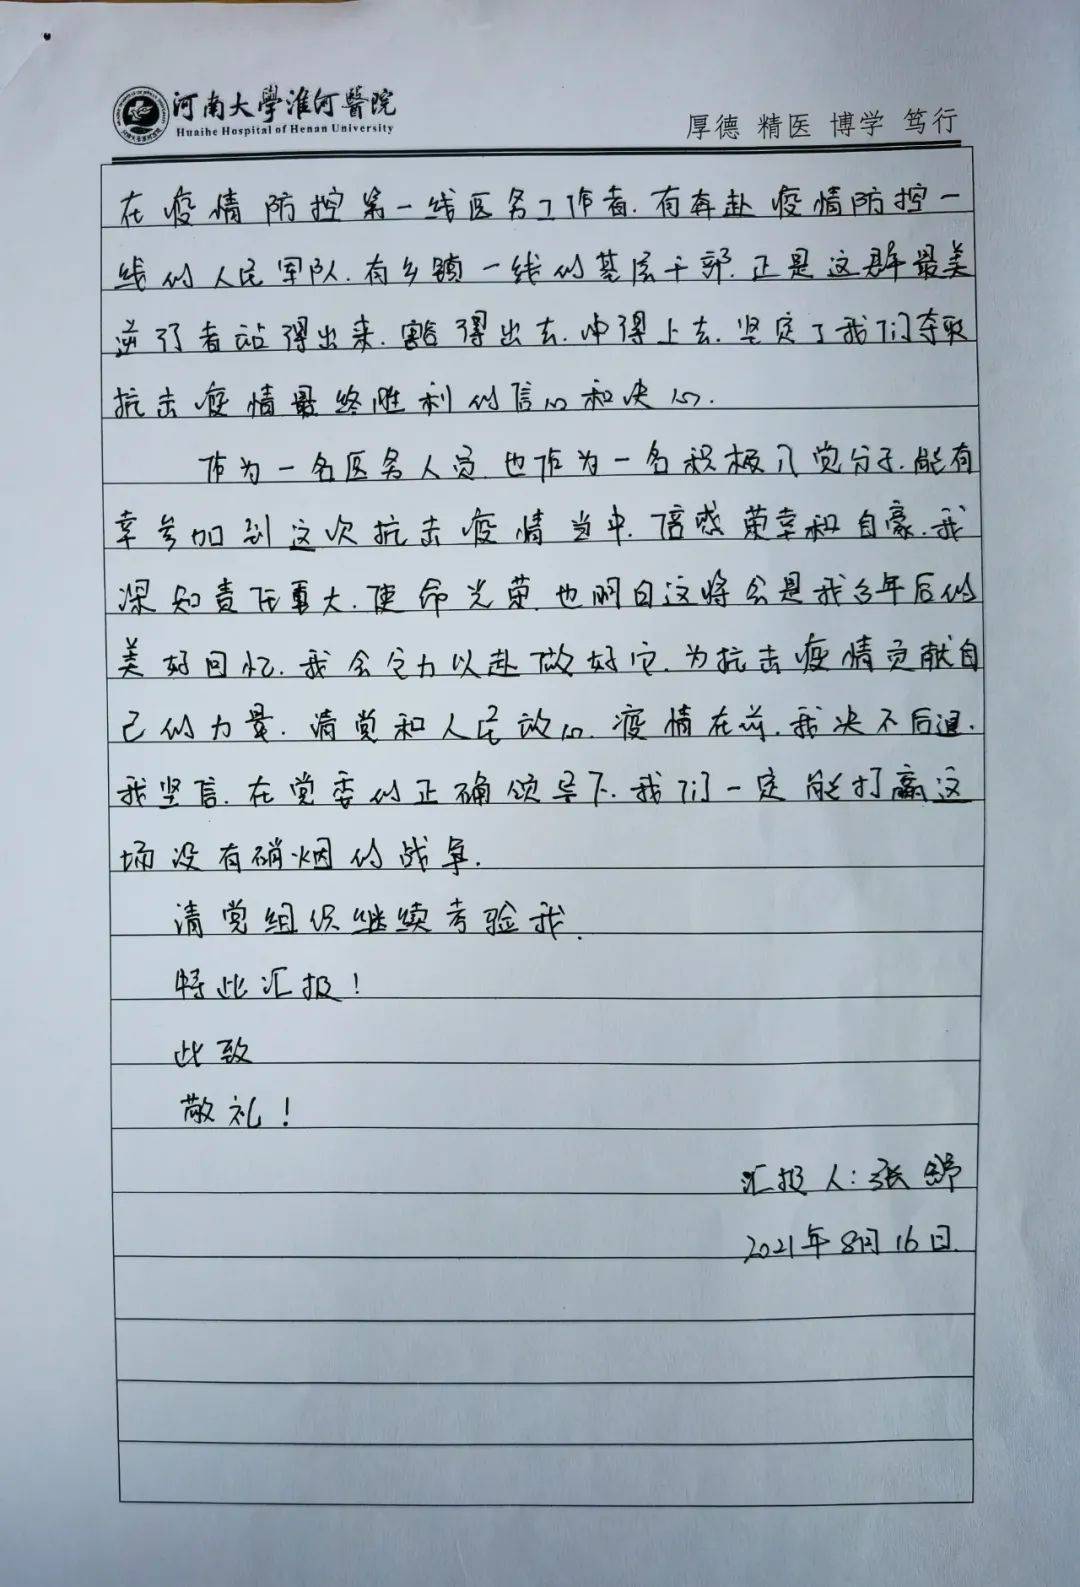 河南大學淮河醫院
Huaihe Hospital of Henan University
厚德 精医 博学 笃行
在疫情防控第一线医务工作者.有奔赴疫情防控一
线的人民军队.有乡镇一线的基层干部.正是这群最美
逆行者站得出来.豁得出去.冲得上去.坚定了我们夺取
抗击疫情最终胜利的信心和决心.
作为一名医务人员.也作为一名积极入党分子.能有
幸参加到这次抗击疫情当中.倍感荣幸和自豪.我
深知责任重大.使命光荣.也明白这将会是我多年后的
美好回忆.我会全力以赴做好它.为抗击疫情贡献自
己的力量.请党和人民放心.疫情在前.我决不后退.
我坚信.在党委的正确领导下.我们一定能打赢这
场没有硝烟的战争.
请党组织继续考验我.
特此汇报!
此致
敬礼!
汇报人:张舒
2021年8月16日.